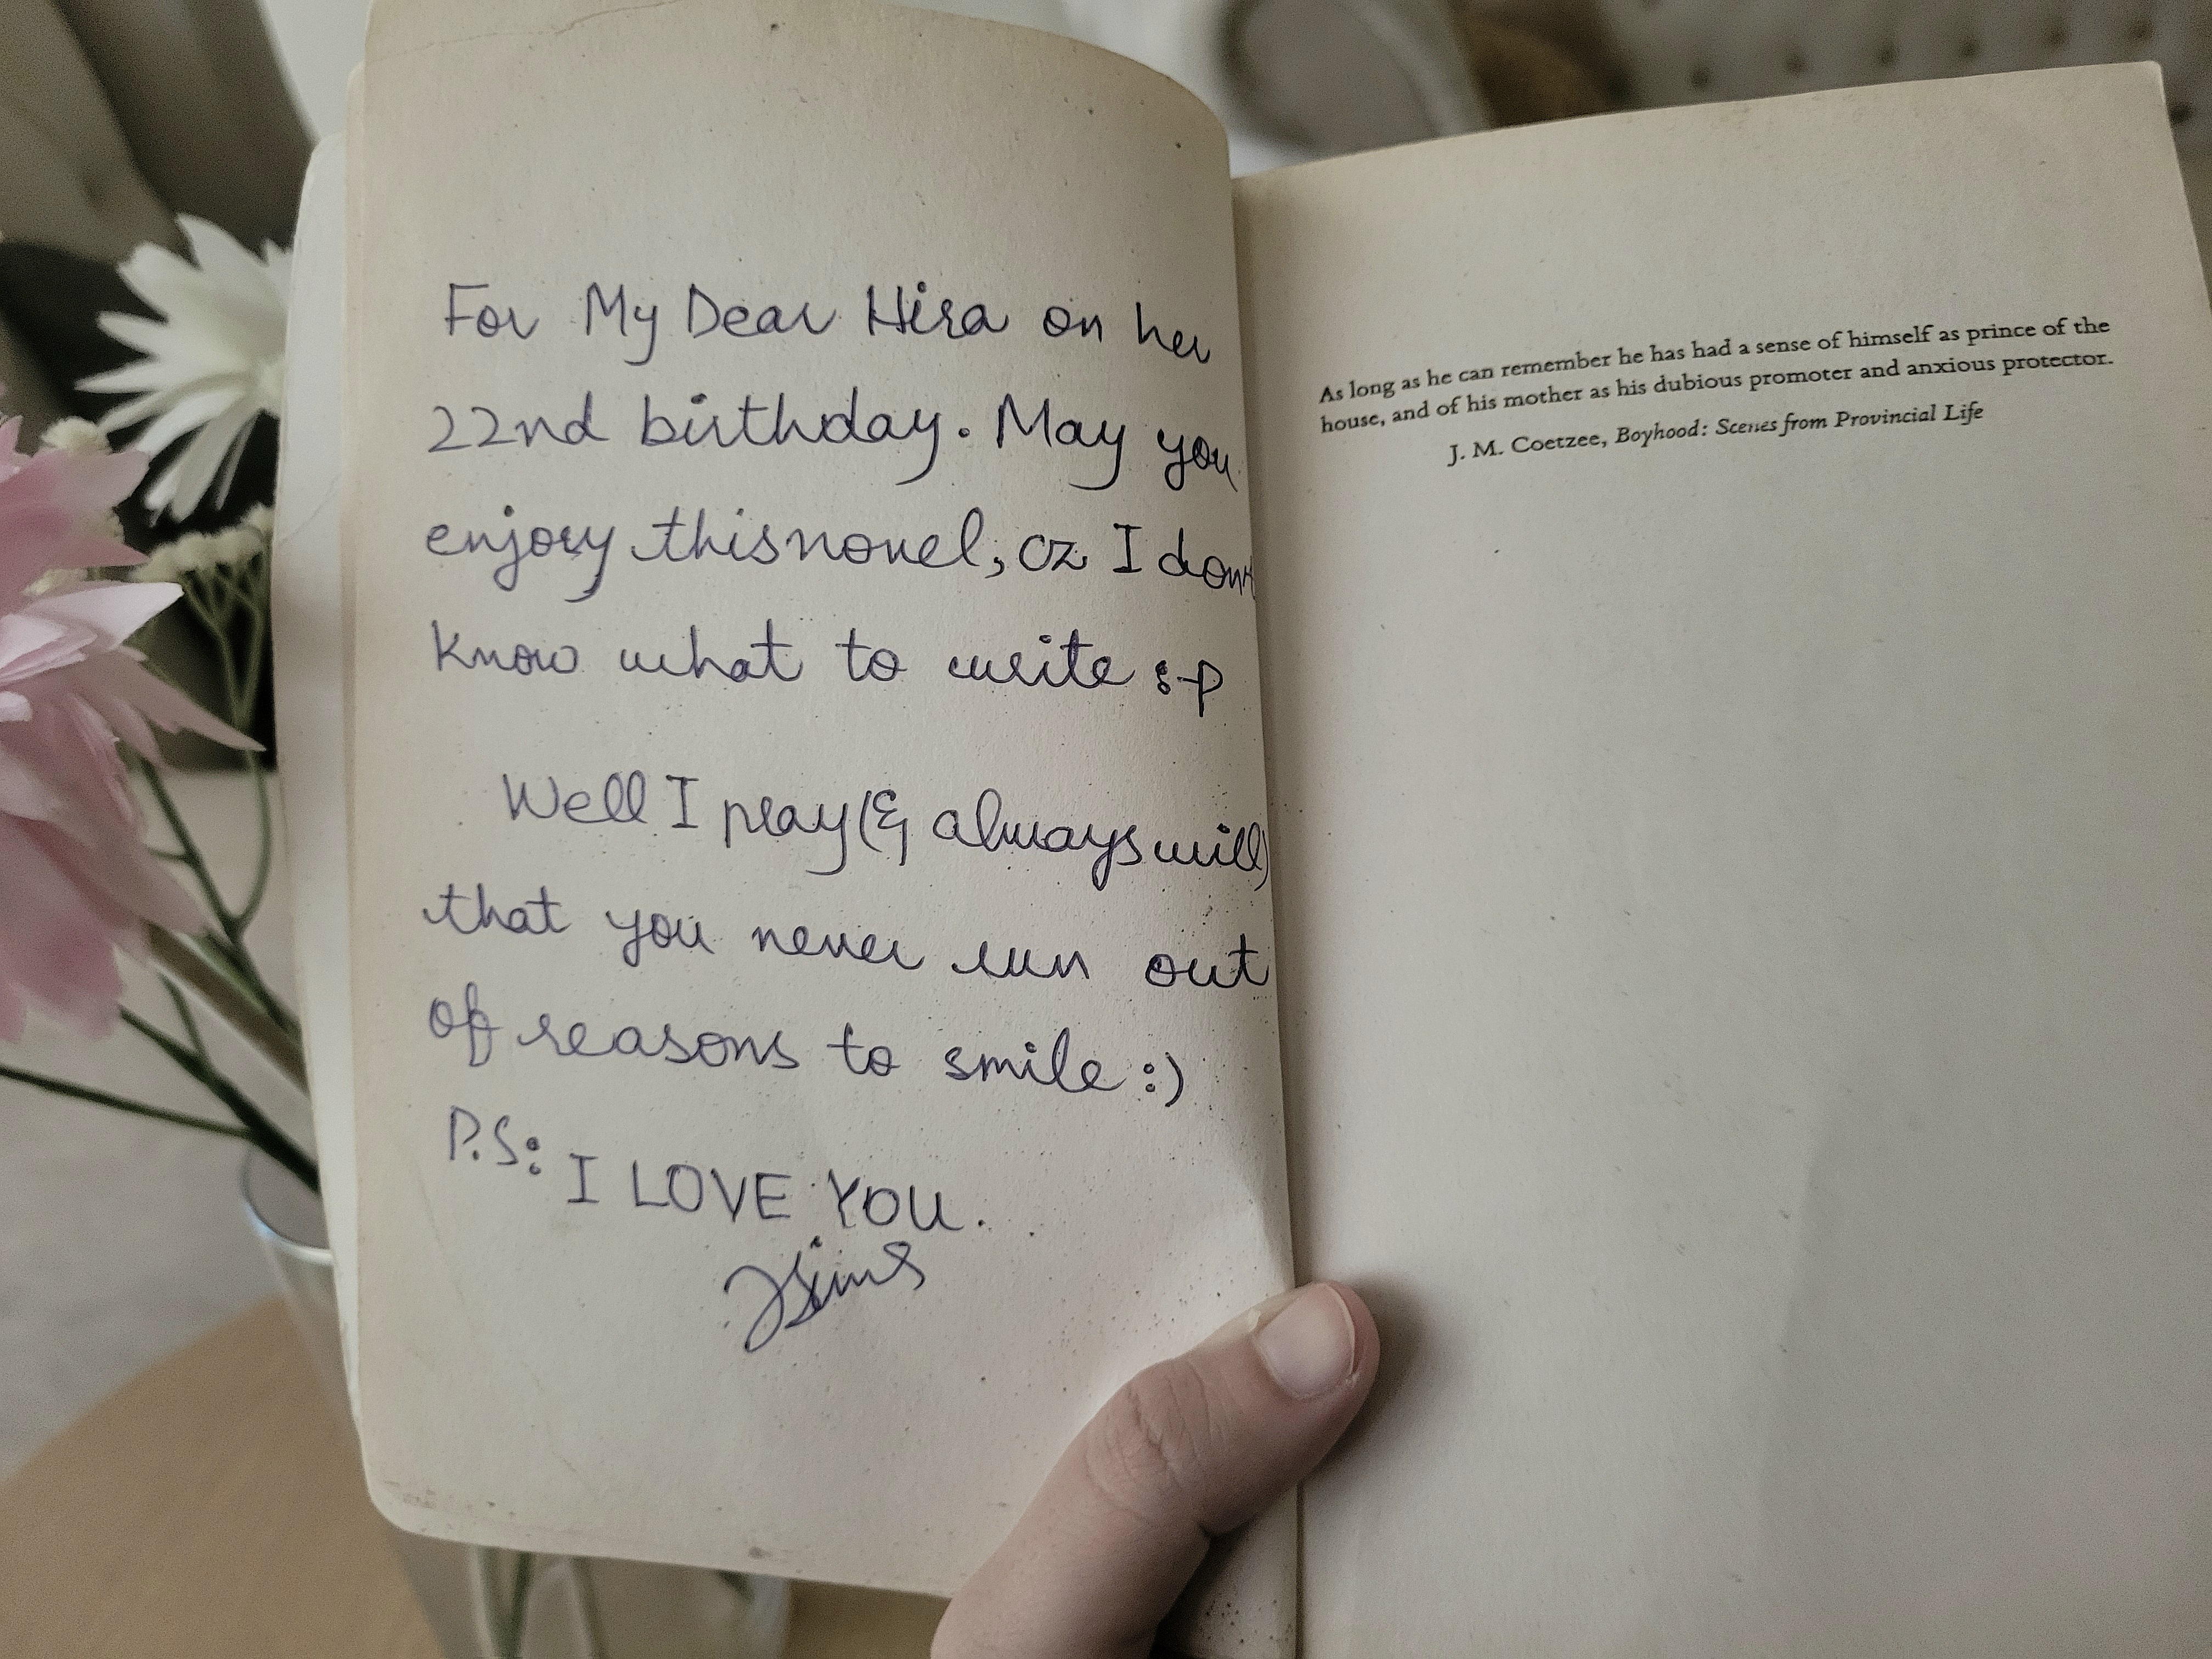 For My Dear Hira on her
22nd birthday. May you
enjoy this novel, cz I don't
know what to write :-p
Well I pray (& always will)
that you never run out
of reasons to smile :)
P.S: I LOVE YOU.
As long as he can remember he has had a sense of himself as prince of the
house, and of his mother as his dubious promoter and anxious protector.
J. M. Coetzee, Boyhood: Scenes from Provincial Life